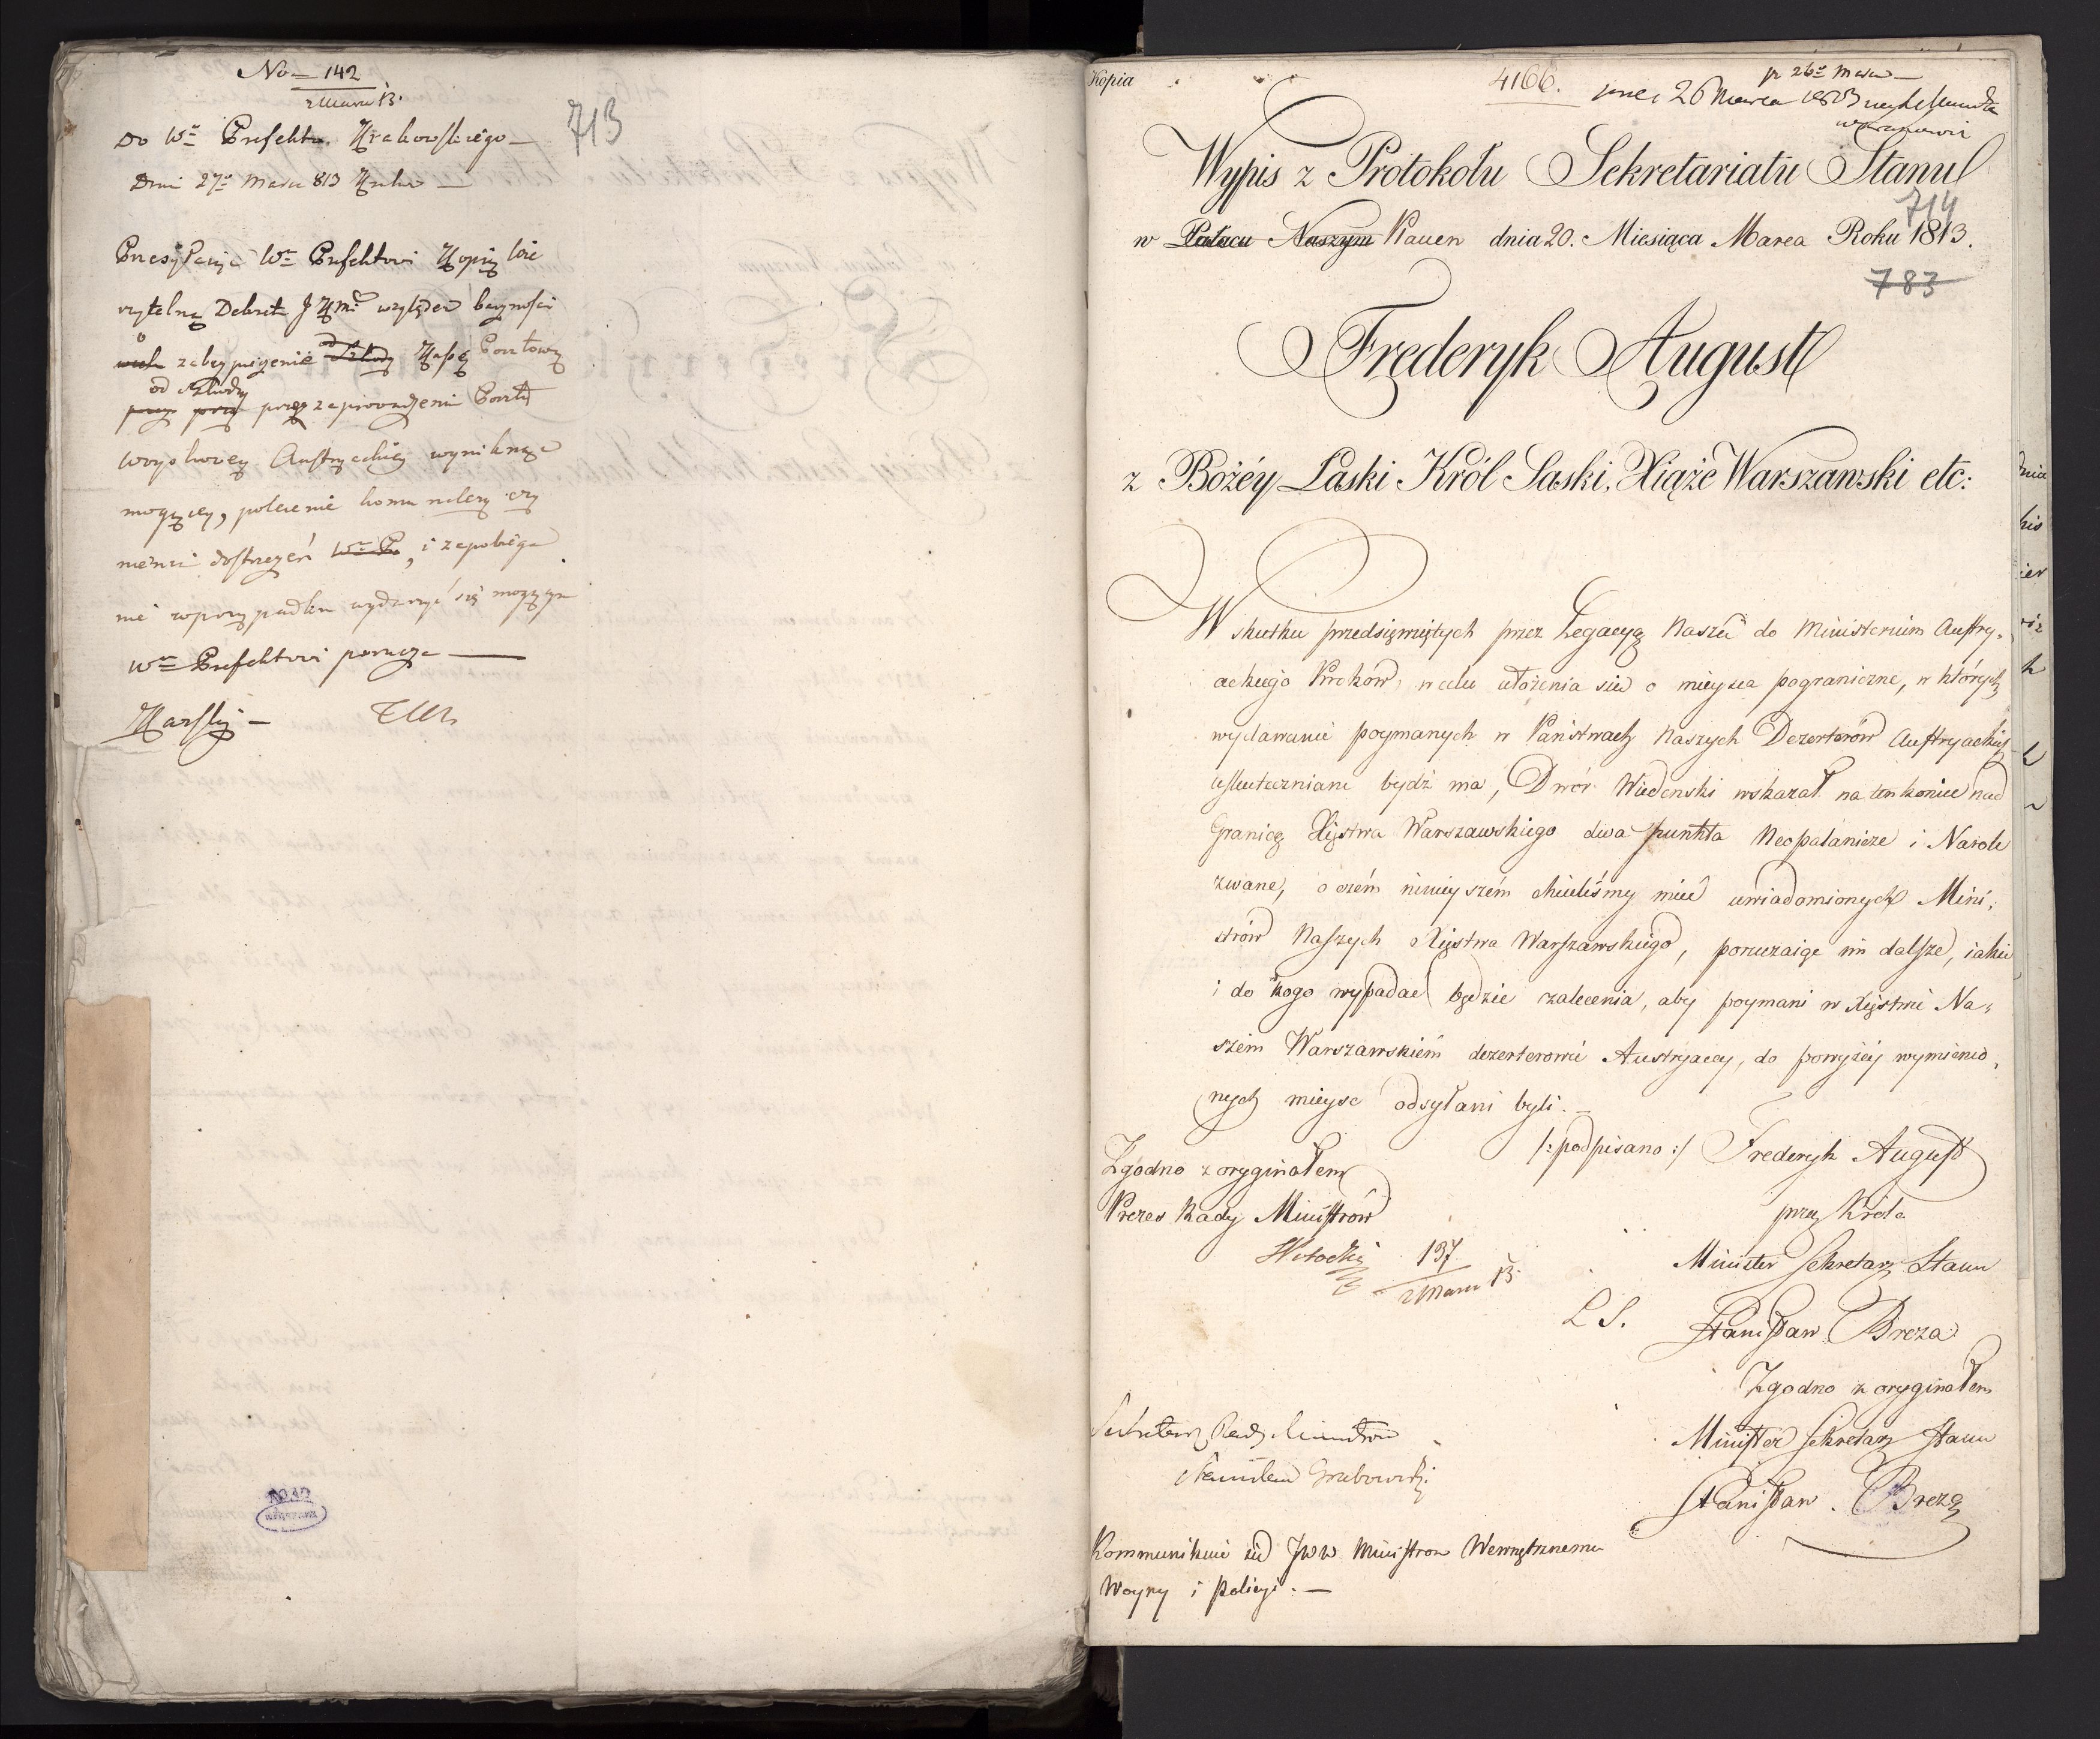 No 142
Marca 13.
713
Do Wo Prefekta Krakowskiego
Dnia 27o Marca 813
Przesyłając Wu Prefektowi Kopią wie
rzytelną Dekretu JKMci względem baczności
o zabezpieczenie Kassę Pocztową
od szkody
przez zaprowadzenie Poczty
Austryackiey wyniknąć
mogącey, polecenie komu należy czy
nienia dostrzeżeń, i zapobieże
nie w przypadku wydarzyć się mogącym
Wu Prefektowi porucza
Karski
Kopia
4166.
pr 26o Marca
26 Marca 1813
Wypis z Protokołu Sekretariatu Stanu
714
w Pałacu Naszym Plauen dnia 20. Miesiąca Marca Roku 1813.
783
Frederyk August
z Bożéy Łaski Król Saski, Xiąże Warszawski etc:
W skutku przedsięwziętych przez Legacyą Naszą do Ministerium Austry-
ackiego Kroków, w celu ułożenia się o mieysca pograniczne, w których
wydawanie poymanych w Państwach Naszych Dezerterów Austryackich
uskuteczniane bydź ma, Dwór Wiedeński wskazał na ten koniec nad
Granicą Xięstwa Warszawskiego dwa punkta Neopałanicze i Narole
zwane, o czém ninieyszém chcieliśmy mieć uwiadomionych Mini-
strów Naszych Xięstwa Warszawskiego, poruczaiąc im dalsze, iakie
i do kogo wypadać będzie zalecenia, aby poymani w Xięstwie Na-
szém Warszawskiém dezerterowie Austryaccy, do powyżéy wymienio-
nych mieysc odsyłani byli.
/: podpisano :/ Frederyk August
Zgodno z oryginałem
Prezes Rady Ministrów
przez Króla
137
Marca 13.
Minister Sekretarz Stanu
L.S.
Stanisław Breza
Zgodno z oryginałem
Sekretarz Rady Ministrów
Minister Sekretarz Stanu
Stanisław Grabowski
Stanisław Breza
Kommunikuie się JWW Ministrom Wewnętrznemu
Woyny i Policyi.